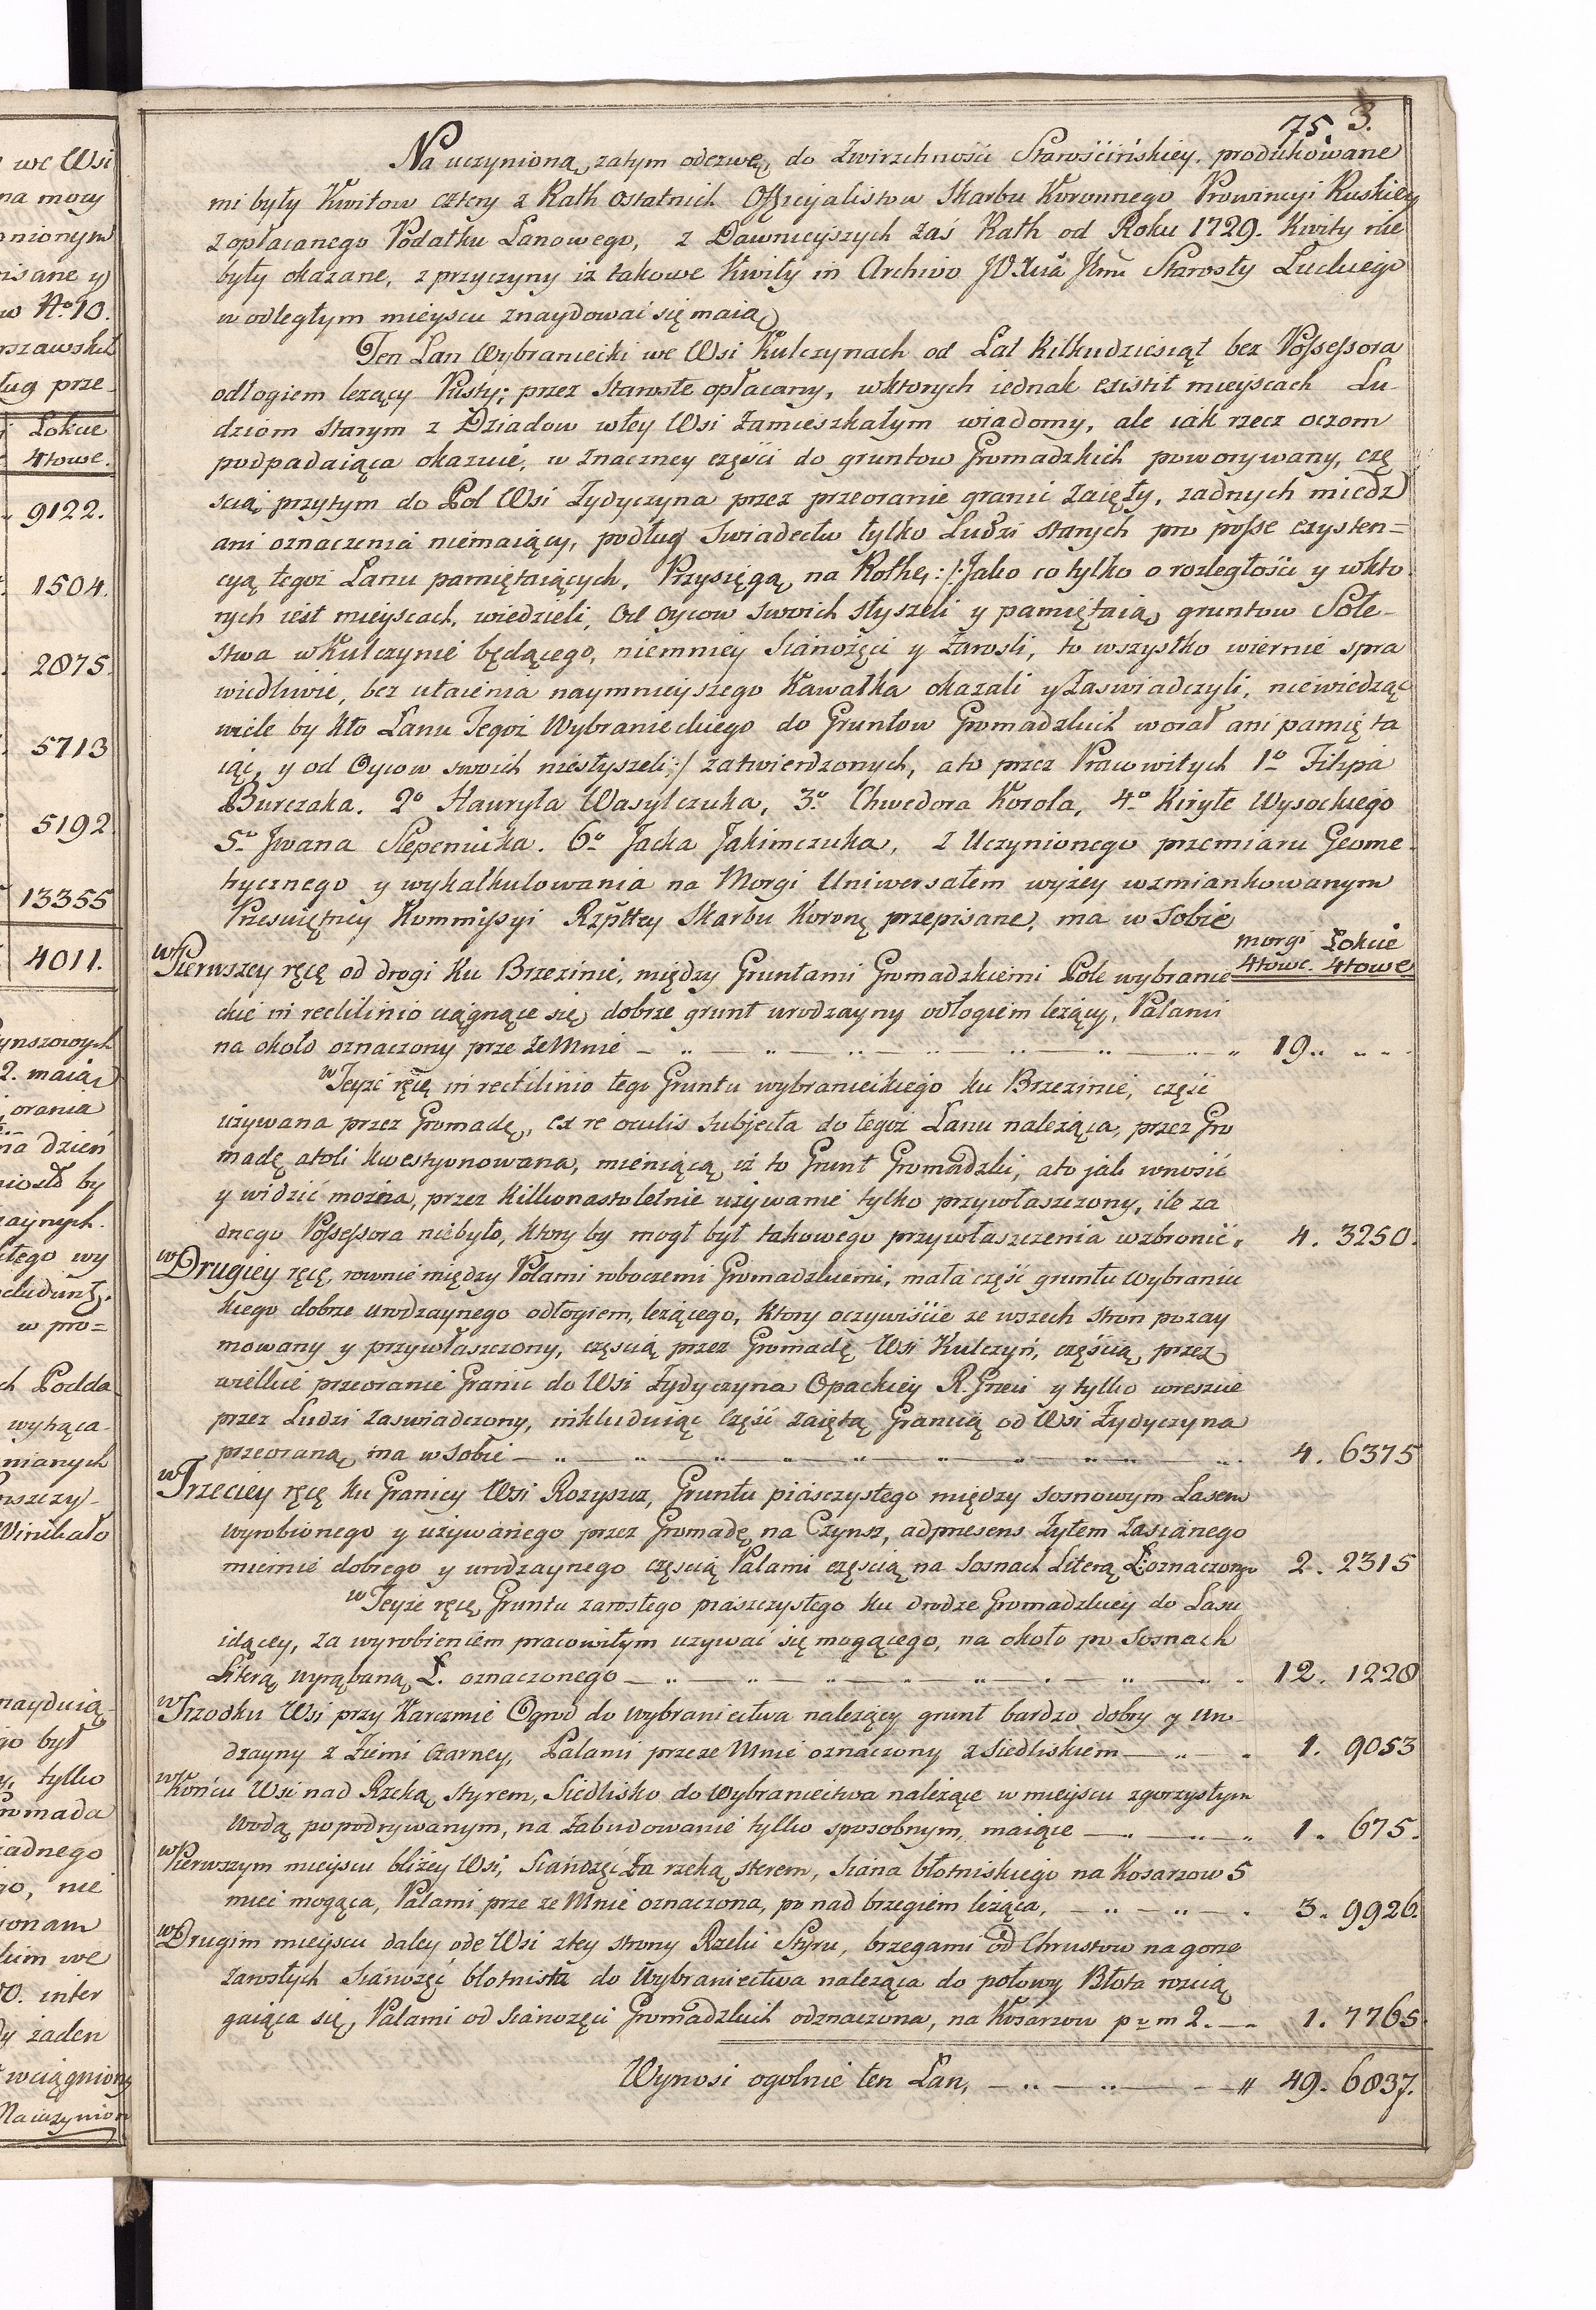 we Wsi
na mocy
onionym
isane y
w No 10.
rszawskich
ług prze-
Łokcie
4towe.
9122.
1504.
2875.
5713
5192
13355
4011.
ynszowych
2. maią
orania
na dzień
by
zaynych.
łego wy
w pro=
ch Podda
wytrąca-
nianych
Winikało
nayduią-
go był
tylko
romada
żadnego
go, nie
sonam
we
inter
dy żaden
wciągniony
75. 3.
Na uczynioną zatym odezwę do Zwirzchności Starościńskiey. produkowane
mi były Kwitow cztery z Rath ostatnich Officyalistow Skarbu Koronnego Prowincyi Ruskiey
z opłacanego Podatku Łanowego, z Dawnieyszych zaś Rath od Roku 1729. Kwity nie
były okazane, z przyczyny iż takowe Kwity in Archivo Starosty Łuckiego
w odległym mieyscu znaydować się maią
Ten Łan Wybraniecki we Wsi Kulczynach od Lat kilkudziesiąt bez Possessora
odłogiem leżący Pusty; przez Staroste opłacany, w ktorych iednak existit mieyscach Lu-
dziom starym z Dziadow w tey Wsi Zamieszkałym wiadomy, ale iak rzecz oczom
podpadaiąca okazuie, w znaczney części do gruntow Gromadzkich poworywany, czę
scią przytym do Pol Wsi Żydyczyna przez przeoranie granic zaięty, żadnych miedz
ani oznaczenia niemaiący, podług swiadectw tylko Ludzi starych pro posse exysten=
cyą tegoż Łanu pamiętaiących, Przysięgą na Rothe: /: Jako co tylko o rozległości y w kto
rych iest mieyscach, wiedzieli, od oycow swoich słyszeli y pamiętaią gruntow Sołe-
stwa w Kulczynie będącego, niemniey sianożęci y Zarosli, to wszystko wiernie spra
wiedliwie, bez utaienia naymnieyszego Kawałka okazali y Zaswiadczyli, niewiedząc
wiele by kto Łanu Tegoż Wybranieckiego do Gruntow Gromadzkich worał ani pamięta
iąc, y od Oycow swoich niesłyszeli :/ zatwierdzonych, a to przez Pracowitych 1o Filipa
Burczaka. 2o Hawryła Wasylczuka, 3o Chwedora Korola, 4o Kiryłe Wysockiego
5o Jwana Slepeniuka. 6o Jacka Jakimczuka, z Uczynionego przemiaru Geome-
trycznego y wykalkulowania na Morgi Uniwersałem wyżey wzmiankowanym
Przeświętney Kommissyi Rzpltey Skarbu Koronę przepisane, ma w sobie
morgi Łokcie
4towe. 4towe
w Pierwszey ręcę od drogi ku Brzezinie, między Gruntami Gromadzkiemi Pole wybranie
ckie in rectilinio ciągnące się dobrze grunt urodzayny odłogiem leżący, Palami
na około oznaczony prze ze Mnie — 19.
w Teyże ręcę in rectilinio tego Gruntu wybranieckiego ku Brzezinie, część
używana przez Gromadę, ex re oculis subjecta do tegoż Łanu należąca, przez Gro
madę atoli kwestyonowana, mieniącą iż to Grunt Gromadzki, a to jak wnosić
y widzić można, przez kilkonastoletnie używanie tylko przywłaszczony, ile za
dnego Possessora niebyło, ktory by mogł był takowego przywłaszczenia wzbronić. 4. 3250.
w Drugiey ręcę, rownie między Polami roboczemi Gromadzkiemi, mała część gruntu Wybraniec
kiego dobrze urodzaynego odłogiem, leżącego, ktory oczywiście ze wszech stron pozay
mowany y przywłaszczony, częscią przez Gromadę Wsi Kulczyń, częścią przez
wielkie przeoranie Granic do Wsi Żydyczyna Opackiey R. Grecii y tylko wreszcie
przez Ludzi zaswiadczony, inkluduiąc Część zaiętą Granicą od Wsi Żydyczyna
przeoraną ma w sobie — 4. 6375
w Trzeciey ręcę ku Granicy Wsi Rozyszcz, Gruntu piasczystego między sosnowym Lasem
wyrobionego y używanego przez Gromadę na Czynsz, ad presens Żytem Zasianego
miernie dobrego y urodzaynego częscią Palami częscią na sosnach Literą Ł: oznaczonego 2. 2315
w Teyże ręcę Gruntu zarosłego piasczystego ku drodze Gromadzkiey do Lasu
idącey, za wyrobieniem pracowitym używać się mogącego, na około po Sosnach
Literą wyrąbaną Ł. oznaczonego — 12. 1228
w Srzodku Wsi przy Karczmie Ogrod do wybraniectwa należący grunt bardzo dobry y uro-
dzayny z Ziemi Czarney, Palami przeze Mnie oznaczony z Siedliskiem — 1. 9053
w Końcu Wsi nad Rzeką Styrem, Siedlisko do Wybraniectwa należące w mieyscu zgorzystym
Wodą popodrywanym, na Zabudowanie tylko sposobnym, maiące — 1. 675.
w Pierwszym mieyscu bliżey Wsi, Sianożęć Za rzeką sterem, siana błotniskiego na Kosarzow 5
mieć mogąca, Palami prze ze Mnie oznaczona, po nad brzegiem leżąca, — 3. 9926.
w Drugim mieyscu daley ode Wsi z tey strony Rzeki Styru, brzegami od Chrustow na gorze
zarosłych Sianożęć błotnista do Wybraniectwa należąca do połowy Błota rozcią
gaiąca się, Palami od sianożęci Gromadzkich odznaczona, na Kosarzow p. m 2. — 1. 7765.
Wynosi ogolnie ten Łan, — 49. 6837.